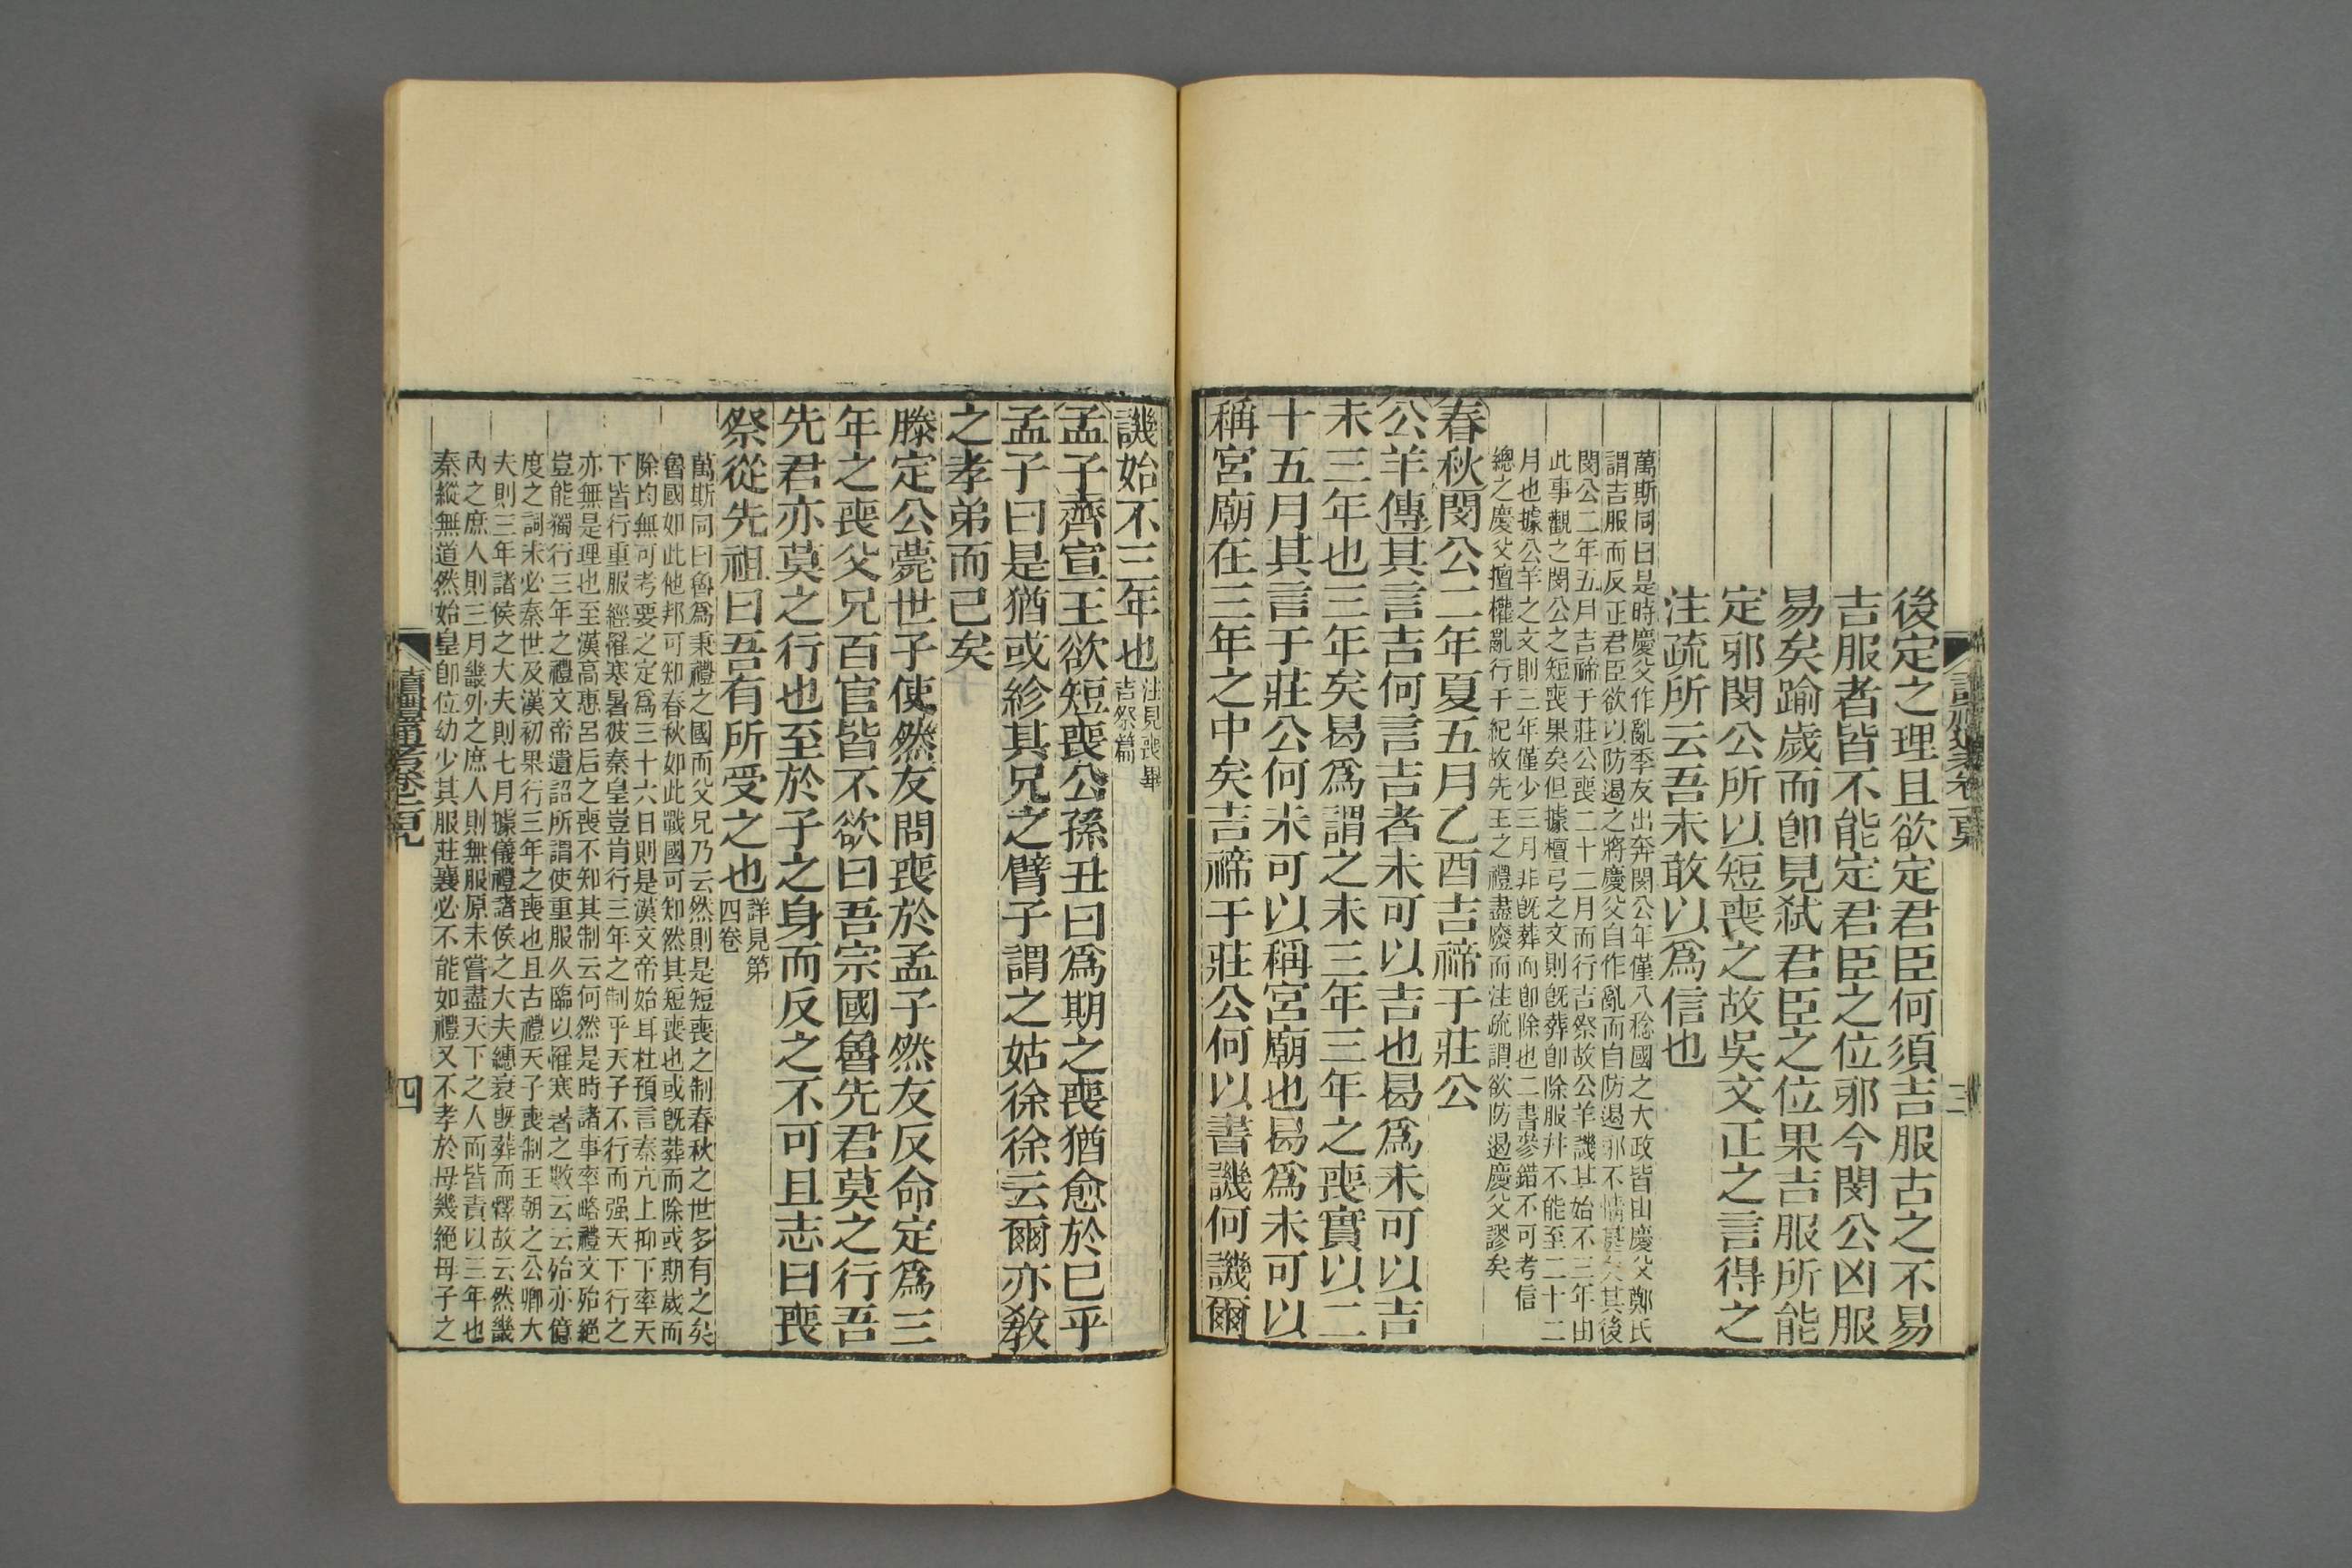 後定之理且欲定君臣何須吉服古之不易
吉服者皆不能定君臣之位邪今閔公凶服
易矣踰歲而卽見弑君臣之位果吉服所能
定邪閔公所以短喪之故吳文正之言得之
注疏所云吾未敢以爲信也
萬斯同曰是時慶父作亂季友出奔閔公年僅八稔國之大政皆由慶父鄭氏
謂吉服而反正君臣欲以防遏之將慶父自作亂而自防遏邪不情甚矣其後
閔公二年五月吉禘于莊公喪二十二月而行吉祭故公羊譏其始不三年由
此事觀之閔公之短喪果矣但據檀弓之文則旣葬卽除服幷不能至二十二
月也據公羊之文則三年僅少三月非旣葬而卽除也二書參錯不可考信
總之慶父擅權亂行干紀故先王之禮盡廢而注疏謂欲防遏慶父謬矣
春秋閔公二年夏五月乙酉吉禘于莊公
公羊傳其言吉何言吉者未可以吉也曷爲未可以吉
未三年也三年矣曷爲謂之未三年三年之喪實以二
十五月其言于莊公何未可以稱宮廟也曷爲未可以
稱宮廟在三年之中矣吉禘于莊公何以書譏何譏爾
三
譏始不三年也注見喪畢吉祭篇
孟子齊宣王欲短喪公孫丑曰爲期之喪猶愈於已乎
孟子曰是猶或紾其兄之臂子謂之姑徐徐云爾亦敎
之孝弟而已矣
滕定公薨世子使然友問喪於孟子然友反命定爲三
年之喪父兄百官皆不欲曰吾宗國魯先君莫之行吾
先君亦莫之行也至於子之身而反之不可且志曰喪
祭從先祖曰吾有所受之也詳見第四卷
萬斯同曰魯爲秉禮之國而父兄乃云然則是短喪之制春秋之世多有之矣
魯國如此他邦可知春秋如此戰國可知然其短喪也或旣葬而除或期歲而
除均無可考要之定爲三十六日則是漢文帝始耳杜預言秦亢上抑下率天
下皆行重服經罹寒暑彼秦皇豈肯行三年之制乎天子不行而强天下行之
亦無是理也至漢高惠呂后之喪不知其制云何然是時諸事率略禮文殆絕
豈能獨行三年之禮文帝遺詔所謂使重服久臨以罹寒暑之數云云殆亦億
度之詞未必秦世及漢初果行三年之喪也且古禮天子喪制王朝之公卿大
夫則三年諸侯之大夫則七月據儀禮諸侯之大夫繐衰旣葬而釋故云然畿
內之庶人則三月畿外之庶人則無服原未嘗盡天下之人而皆責以三年也
秦縱無道然始皇卽位幼少其服莊襄必不能如禮又不孝於母幾絕母子之
讀禮通考卷一百九
四